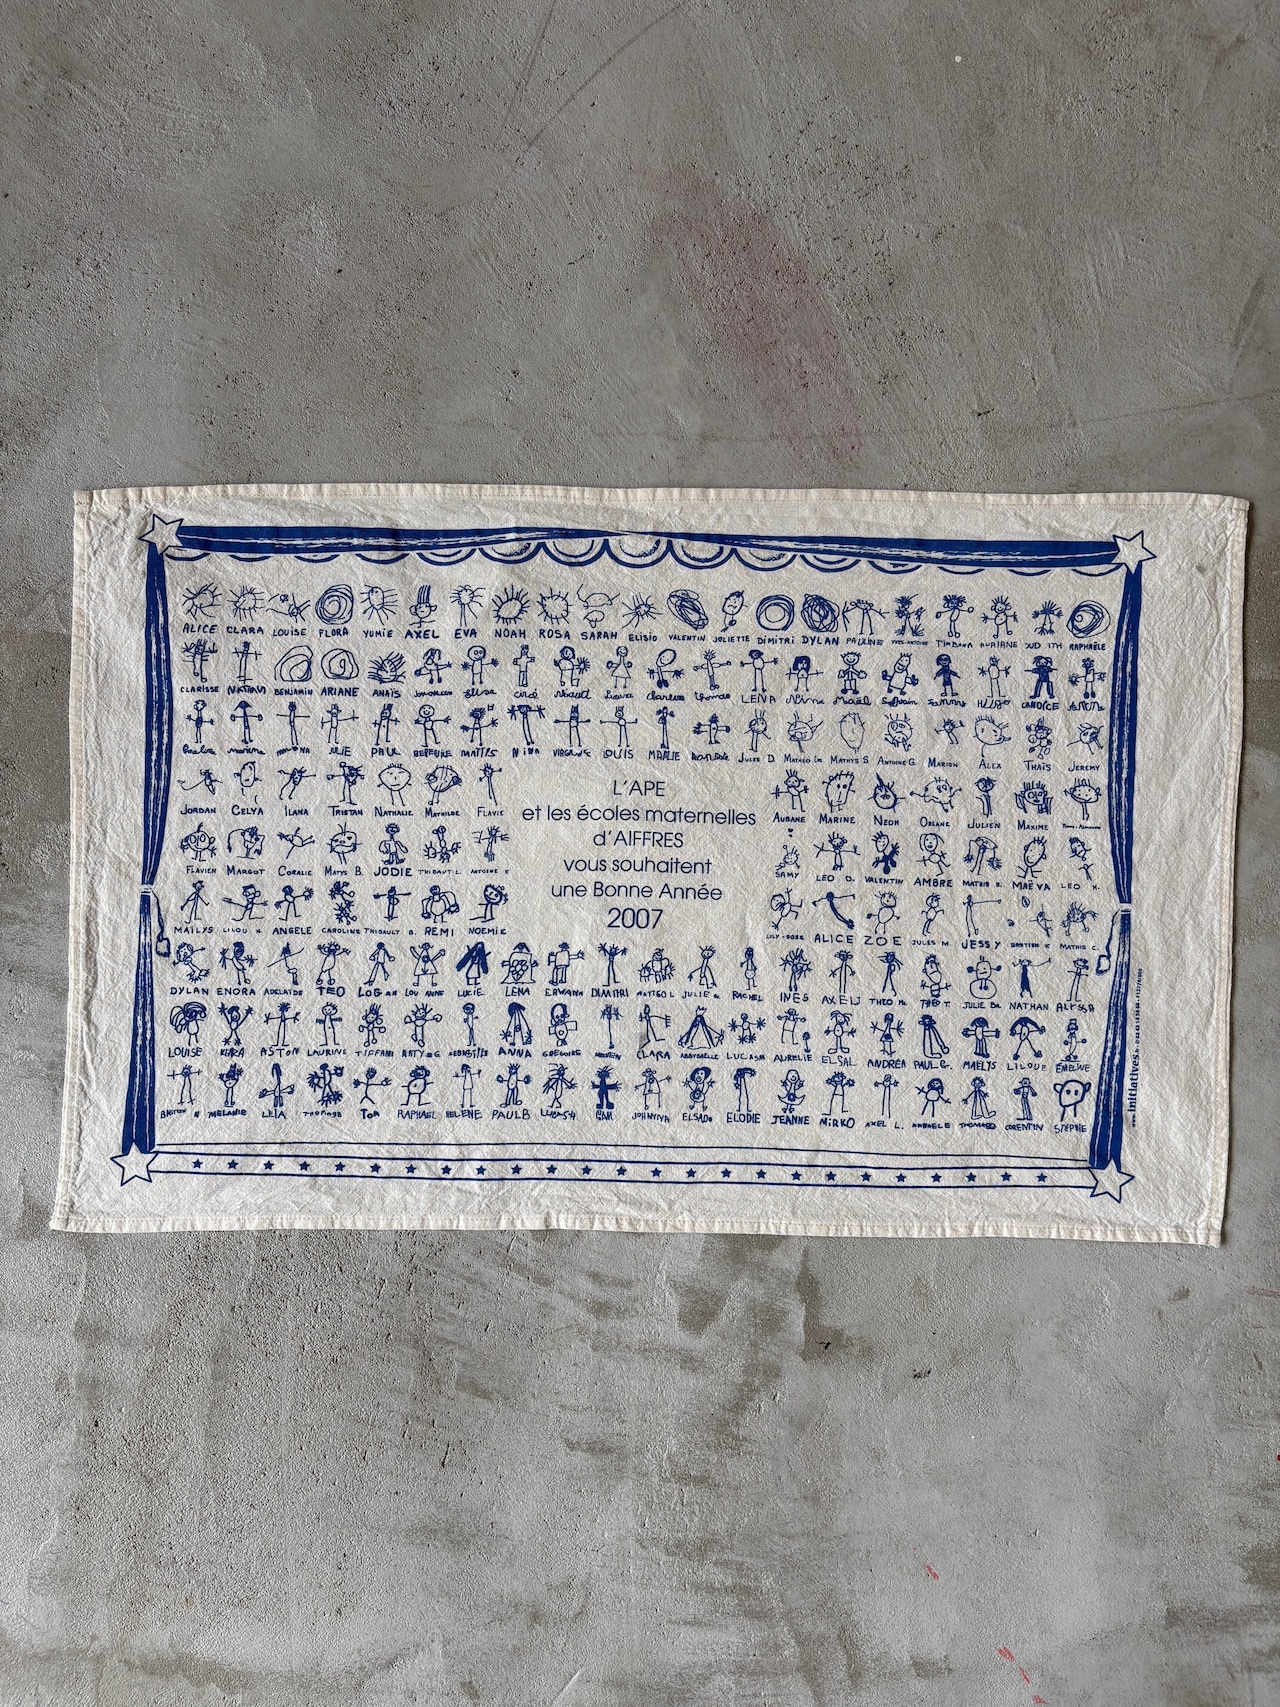 ALICE CLARA LOUISE FLORA YUMIE AXEL EVA NOAH ROSA SARAH ELISIO VALENTIN JULIETTE DIMITRI DYLAN PAULINE YVES-ANTOINE AURIANE JUDITH RAPHAËLE
CLARISSE NATHAN BENJAMIN ARIANE ANAÏS Elise Thomas LENA Nina Maël HUGO CANDICE
JULIE PAUL MATTIS NINA VIRGINIE LOUIS MARIE JULES D. MATHÉO LM MATHYS S ANTOINE G. MARION ALEX THAÏS JEREMY
JORDAN CELYA ILANA TRISTAN NATHALIE MATHILDE FLAVIE
L'APE
et les écoles maternelles
d'AIFFRES
vous souhaitent
une Bonne Année
2007
AUBANE MARINE NEOH ORLANE JULIEN MAXIME
FLAVIEN MARGOT CORALIE MATYS B. JODIE THIBAUT L. ANTOINE
SAMY LEO D. VALENTIN AMBRE MATHIS MAËVA LEO
MAÏLYS LILOU ANGELE CAROLINE THIBAULT G. REMI NOEMIE
LILY-ROSE ALICE ZOE JULES M. JESSY MATHIS C.
DYLAN ENORA ADELAÏDE TEO LOGAN LOU ANNE LUCIE LENA ERWANN DIMITRI MATTEO L JULIE RACHEL INES AXEL THEO M. THEO T. JULIE BR NATHAN ALYSSA
LOUISE KIARA ASTON LAURINE TIFFANI MATYS G SEBASTIEN ANNA GREGOIRE CLARA ABBYGAELLE LUCAS M AURELIE ELSA L ANDRÉA PAUL G. MAELYS LILOUE ÉMELINE
MELANIE LEA TOM RAPHAEL HELENE PAUL B ELSA D ELODIE JEANNE MIRKO AXEL L. THOMAS CORENTIN STEPHIE
www.initiatives.fr